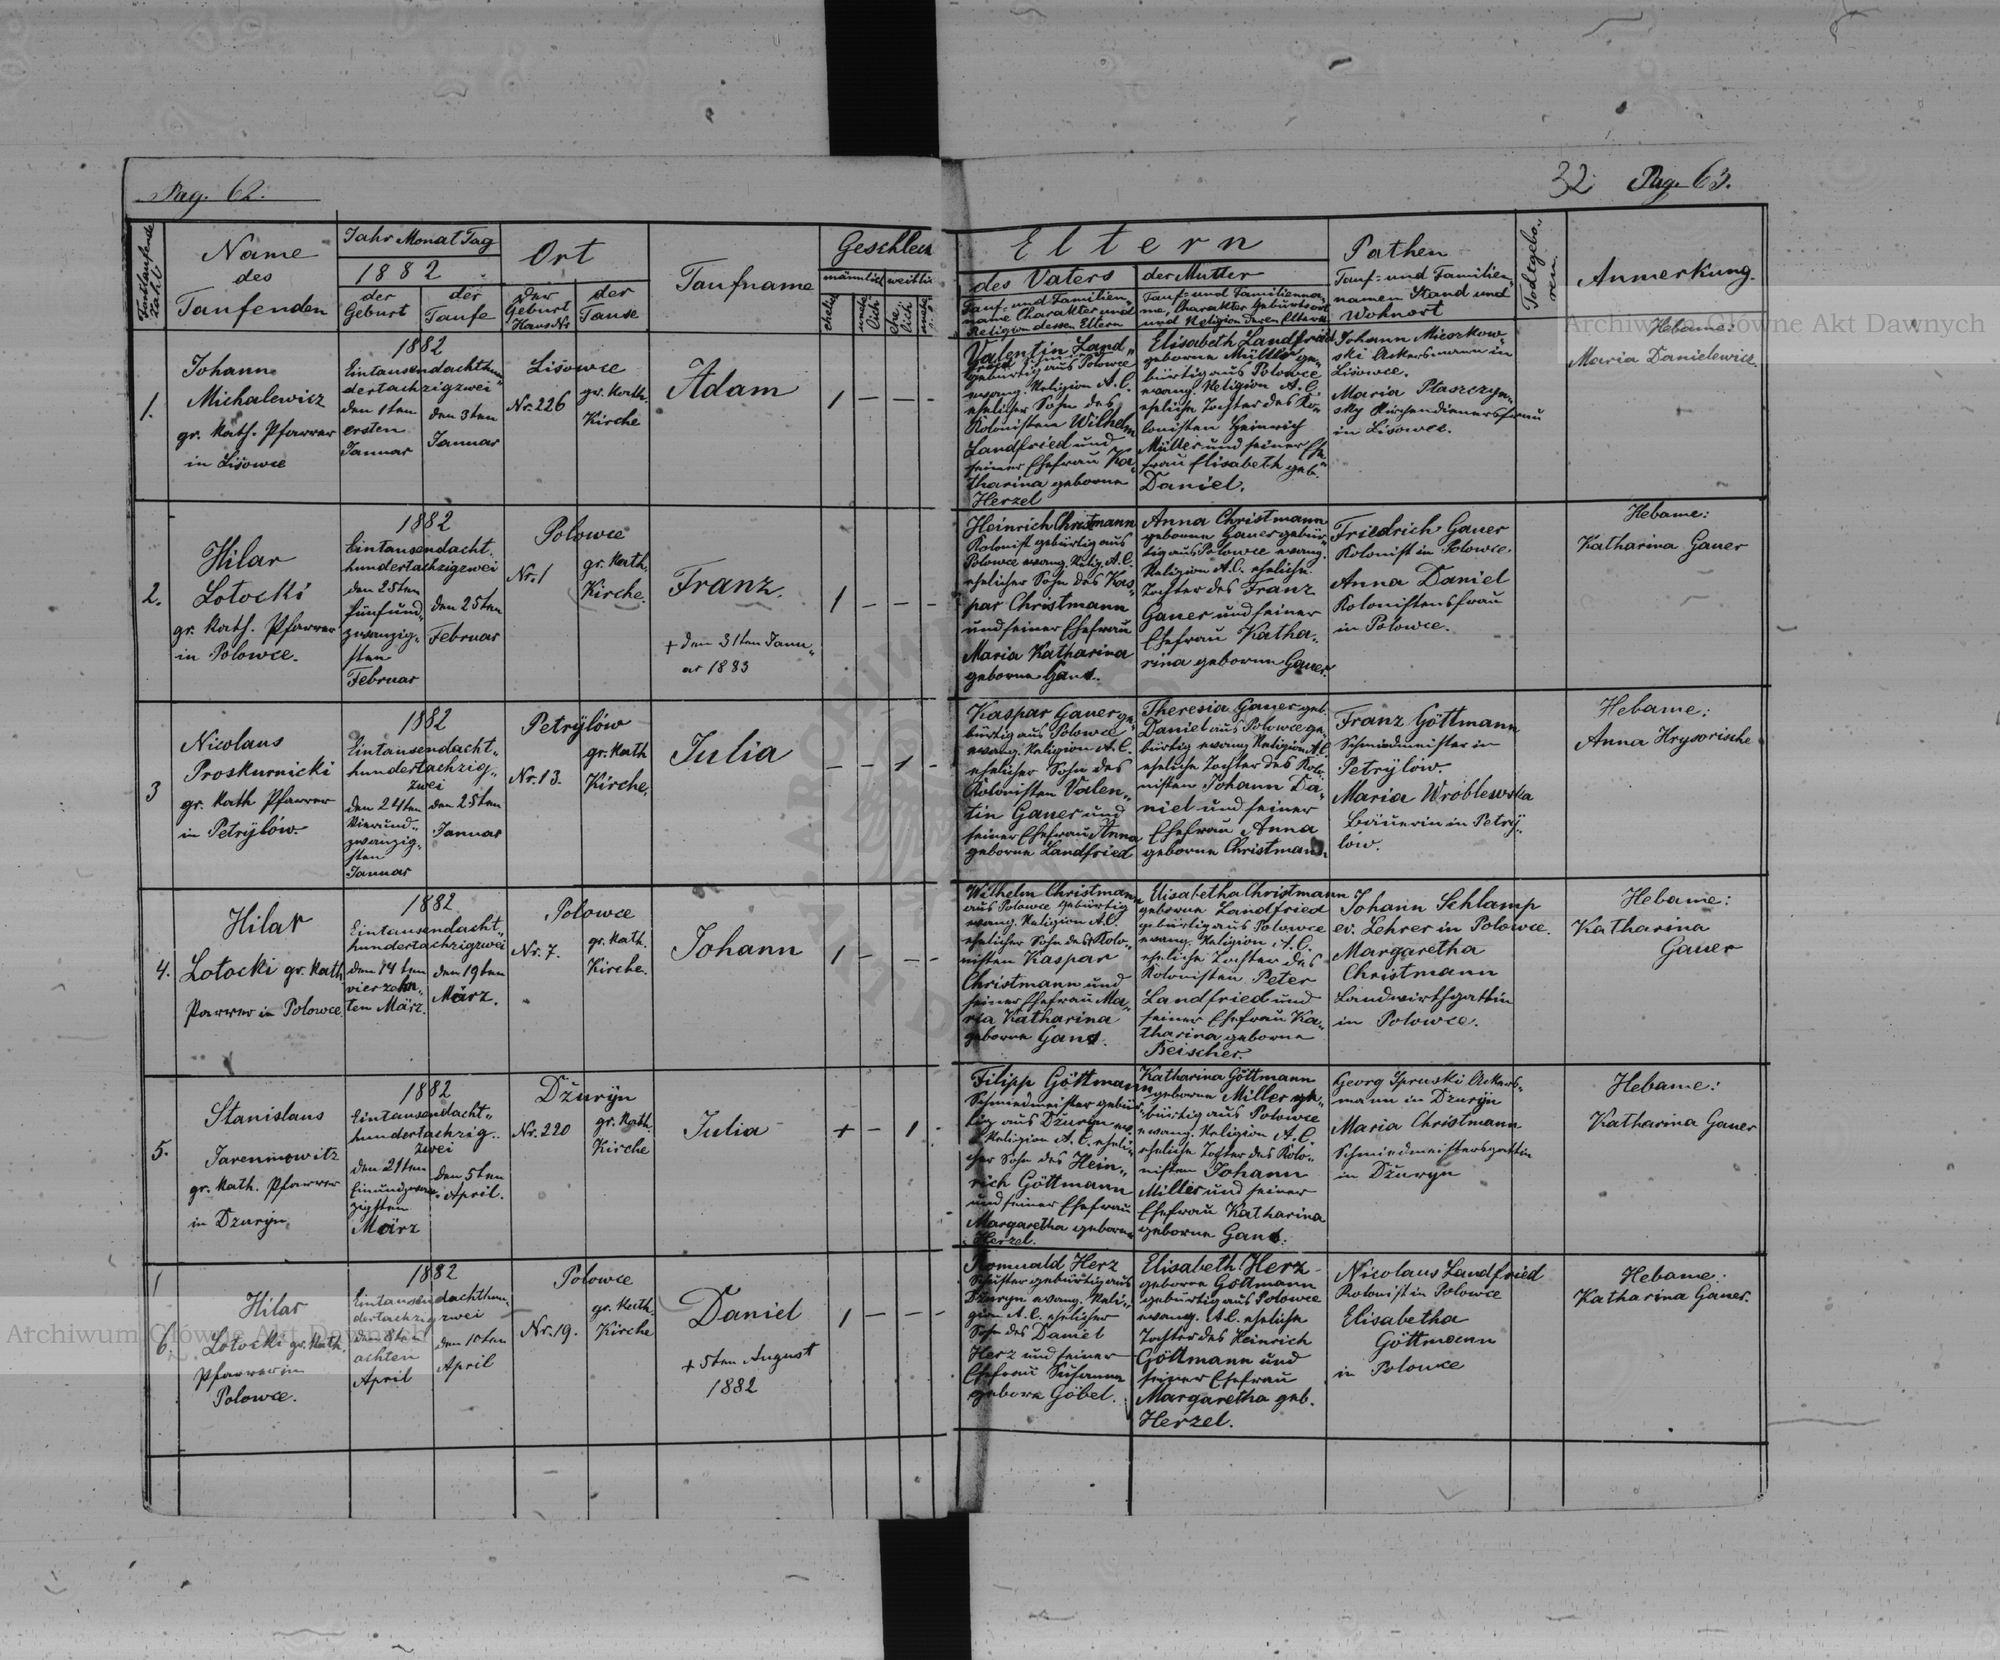 Pag. 62.
32 Pag. 63.
Fortlaufende Zahl
Name
des
Taufenden
Jahr Monat Tag
1882
der Geburt
der Taufe
Ort
der Geburt Haus Nr
der Taufe
Taufname
Geschlech
männlich
weiblic
ehelich
unehelich
ehelich
Eltern
des Vaters
Tauf- und Familien-
name Charakter und
Religion dessen Eltern
der Mutter
Tauf- und Familienna-
me, Charakter Geburtsort
und Religion deren Eltern
Pathen
Tauf- und Familien-
namen Stand und
Wohnort
Todtgebo-
ren
Anmerkung.
1.
Johann
Michalewicz
gr. Kath. Pfarrer
in Lisowce
1882
Eintausendachthun-
dertachzigzwei
den 1ten
ersten
Januar
den 3ten
Januar
Lisowce
Nr. 226
gr. Kath.
Kirche
Adam
1 — — -
Valentin Land-
gebürtig aus Polowce
evang. Religion A. C.
ehelicher Sohn des
Kolonisten Wilhelm
Landfried und
seiner Ehefrau Ka-
tharina geborne
Herzel
Elisabeth Landfried
geborne Müller ge-
bürtig aus Polowce
evang. Religion A. C.
eheliche Tochter des Ko-
lonisten Heinrich
Müller und seiner Ehe-
frau Elisabeth geb.
Daniel.
Johann Miczkow-
ski Ackersmann in
Lisowce.
Maria Plaszczyn-
sky Kirchendienersfrau
in Lisowce.
Hebame:
Maria Danielewicz.
2.
Hilar
Lotocki
gr. Kath. Pfarrer
in Polowce.
1882
Eintausendacht-
hundertachzigzwei
den 25ten
fünfund-
zwanzig-
sten
Februar
den 25ten
Februar
Polowce
Nr. 1
gr. Kath.
Kirche.
Franz.
+ den 31ten Janu-
ar 1883
1 — — -
Heinrich Christmann
Kolonist gebürtig aus
Polowce evang. Relig. A. C.
ehelicher Sohn des Kas-
par Christmann
und seiner Ehefrau
Maria Katharina
geborne Gans.
Anna Christmann
geborne Gauer gebür-
tig aus Polowce evang.
Religion A. C. eheliche
Tochter des Franz
Gauer und seiner
Ehefrau Katha-
rina geborne Gauer.
Friedrich Gauer
Kolonist in Polowce.
Anna Daniel
Kolonistensfrau
in Polowce.
Hebame:
Katharina Gauer
3
Nicolaus
Proskurnicki
gr. Kath Pfarrer
in Petryłów
1882
Eintausendacht-
hundertachzig-
zwei
den 24ten
Vierund-
zwanzig-
sten
Januar
den 25ten
Januar
Petryłów
Nr. 13.
gr. Kath
Kirche.
Julia
— — 1 -
Kaspar Gauer ge-
bürtig aus Polowce
evang. Religion A. C.
ehelicher Sohn des
Kolonisten Valen-
tin Gauer und
seiner Ehefrau Anna
geborne Landfried
Theresia Gauer geb.
Daniel aus Polowce ge-
bürtig evang. Religion A. C.
eheliche Tochter des Kolo-
nisten Johann Da-
niel und seiner
Ehefrau Anna
geborne Christmann
Franz Göttmann
Schmiedmeister in
Petryłów.
Maria Wroblewska
Bäuerin in Petry-
łów.
Hebame:
Anna Hrysorische
4.
Hilar
Lotocki gr. Kath.
Parrer in Polowce
1882
Eintausendacht-
hundertachzigzwei
den 14ten
vierzehn-
ten März.
den 19ten
März.
Polowce
Nr. 7.
gr. Kath.
Kirche.
Johann
1 — — -
Wilhelm Christmann
aus Polowce gebürtig
evang. Religion A. C.
ehelicher Sohn des Kolo-
nisten Kaspar
Christmann und
seiner Ehefrau Ma-
ria Katharina
geborne Gans.
Elisabetha Christmann
geborne Landfried
gebürtig aus Polowce
evang. Religion A. C.
eheliche Tochter des
Kolonisten Peter
Landfried und
seiner Ehefrau Ka-
tharina geborne
Beischer.
Johann Schlamp
ev. Lehrer in Polowce.
Margaretha
Christmann
Landwirthgattin
in Polowce.
Hebame:
Katharina
Gauer
5.
Stanislaus
gr. Kath. Pfarrer
in Dzuryn
1882
Eintausendacht-
hundertachzig-
zwei
den 21ten
Einundzwan-
zigsten
März
den 5ten
April.
Džuryn
Nr. 220
gr. Kath.
Kirche
Julia
+ — 1 -
Filipp Göttmann
Schmiedmeister gebür-
tig aus Dzuryn ev.
Religion A. C. eheli-
cher Sohn des Hein-
rich Göttmann
und seiner Ehefrau
Margaretha geborne
Herzel.
Katharina Göttmann
geborne Miller ge-
bürtig aus Polowce
evang. Religion A. C.
eheliche Tochter des Kolo-
nisten Johann
Miller und seiner
Ehefrau Katharina
geborne Gans.
Georg Spruski Ackers-
mann in Dzuryn
Maria Christmann
Schmiedmeistersgattin
in Dzuryn
Hebame:
Katharina Gauer
6.
Hilar
Lotocki gr. Kath.
Pfarrer in
Polowce.
1882
Eintausendachthun-
dertachzigzwei
den 8ten
achten
April
den 10ten
April
Polowce
Nr. 19.
gr. Kath.
Kirche
Daniel
+ 5ten August
1882
1 — — -
Romuald Herz
Schuster gebürtig aus
Dzuryn evang. Reli-
gion A. C. ehelicher
Sohn des Daniel
Herz und seiner
Ehefrau Susanna
geborn Göbel.
Elisabeth Herz
geborne Göttmann
gebürtig aus Polowce
evang. A. C. eheliche
Tochter des Heinrich
Göttmann und
seiner Ehefrau
Margaretha geb.
Herzel.
Nicolaus Landfried
Kolonist in Polowce
Elisabetha
Göttmann
in Polowce
Hebame:
Katharina Gauer.
Archiwum Główne Akt Dawnych
Archiwum Główne Akt Dawnych